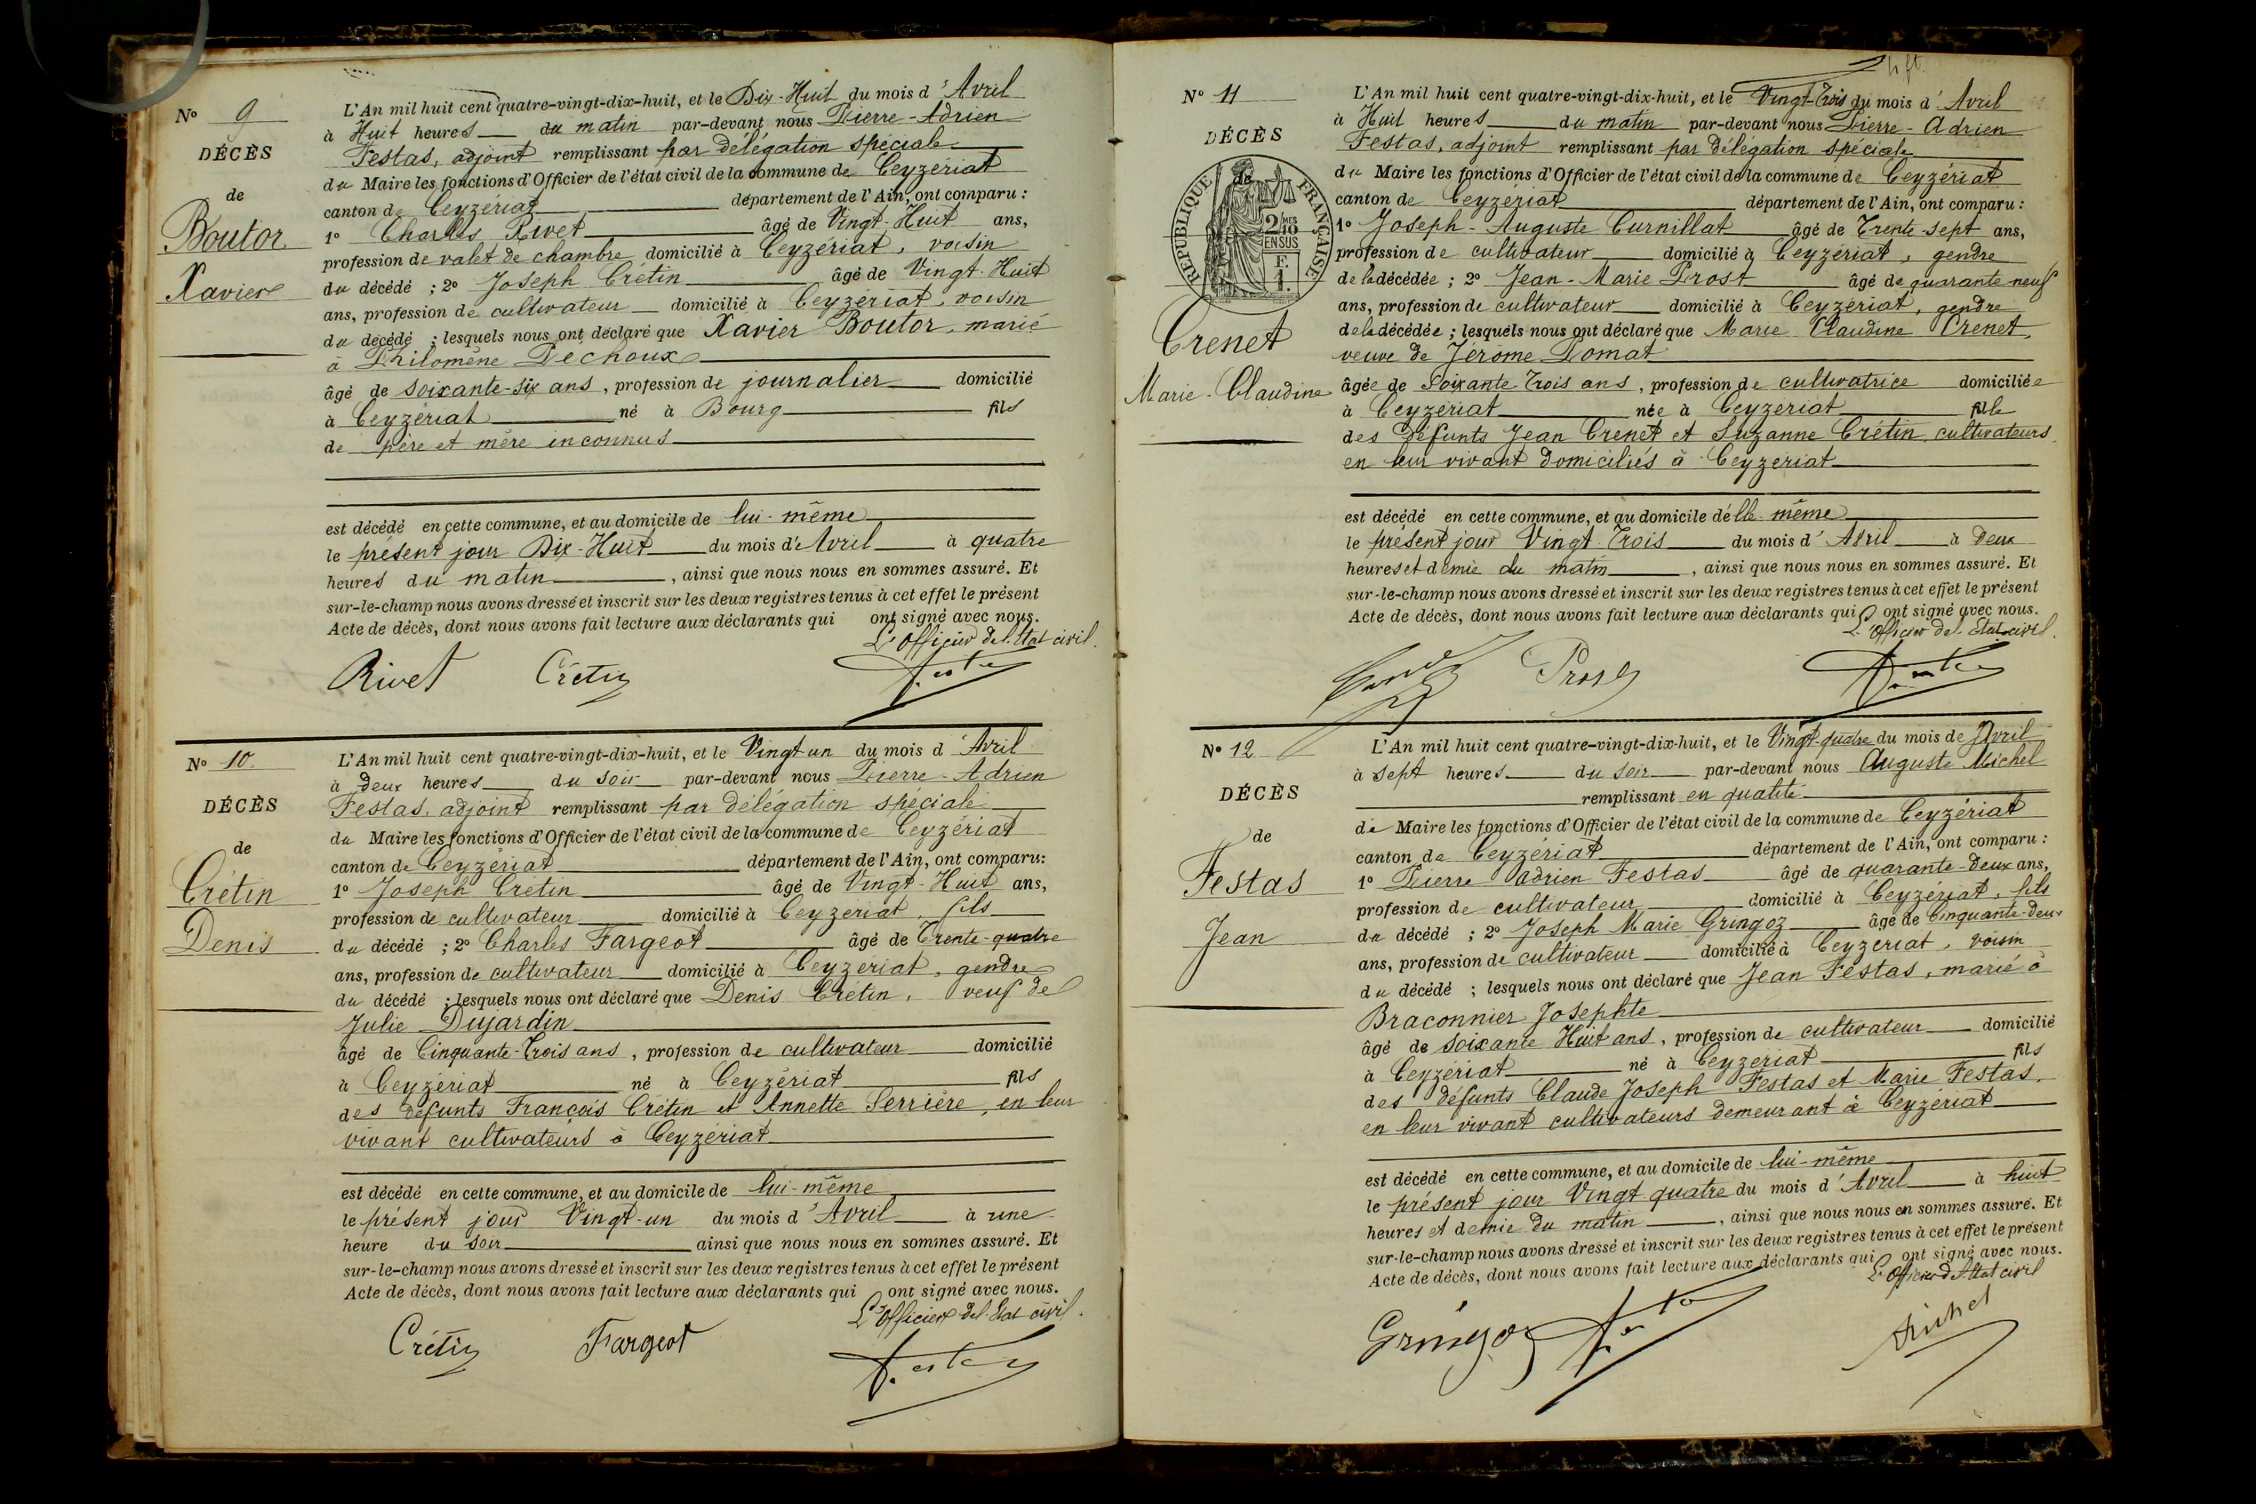 N° 9
DÉCÈS
de
Boutor
Xavier
L'An mil huit cent quatre-vingt-dix-huit, et le Dix-Huit du mois d'Avril
à Huit heures du matin par-devant nous Pierre-Adrien
Festas, adjoint remplissant par délégation spéciale
du Maire les fonctions d'Officier de l'état civil de la commune de Ceyzériat
canton de Ceyzériat département de l'Ain, ont comparu :
1° Charles Rivet âgé de Vingt-Huit ans,
profession de valet de chambre domicilié à Ceyzériat, voisin
du décédé ; 2° Joseph Crétin âgé de Vingt-Huit
ans, profession de cultivateur domicilié à Ceyzériat, voisin
du décédé ; lesquels nous ont déclaré que Xavier Boutor, marié
à Philomène Dechoux
âgé de soixante-six ans, profession de journalier domicilié
à Ceyzériat né à Bourg fils
de père et mère inconnus
est décédé en cette commune, et au domicile de lui-même
le présent jour Dix-Huit du mois d'Avril à quatre
heures du matin, ainsi que nous nous en sommes assuré. Et
sur-le-champ nous avons dressé et inscrit sur les deux registres tenus à cet effet le présent
Acte de décès, dont nous avons fait lecture aux déclarants qui ont signé avec nous.
L'Officier de l'Etat civil.
Rivet Crétin Festas
N° 10
DÉCÈS
de
Crétin
Denis
L'An mil huit cent quatre-vingt-dix-huit, et le Vingt un du mois d'Avril
à deux heures du soir par-devant nous Pierre-Adrien
Festas, adjoint remplissant par délégation spéciale
du Maire les fonctions d'Officier de l'état civil de la commune de Ceyzériat
canton de Ceyzériat département de l'Ain, ont comparu:
1° Joseph Crétin âgé de Vingt-Huit ans,
profession de cultivateur domicilié à Ceyzériat, fils
du décédé ; 2° Charles Fargeot âgé de Trente-quatre
ans, profession de cultivateur domicilié à Ceyzériat, gendre
du décédé ; lesquels nous ont déclaré que Denis Crétin, veuf de
Julie Dujardin
âgé de Cinquante-Trois ans, profession de cultivateur domicilié
à Ceyzériat né à Ceyzériat fils
des défunts François Crétin et Annette Serrière, en leur
vivant cultivateurs à Ceyzériat
est décédé en cette commune, et au domicile de lui-même
le présent jour Vingt-un du mois d'Avril à une
heure du soir ainsi que nous nous en sommes assuré. Et
sur-le-champ nous avons dressé et inscrit sur les deux registres tenus à cet effet le présent
Acte de décès, dont nous avons fait lecture aux déclarants qui ont signé avec nous.
L'Officier de l'Etat civil.
Crétin Fargeot Festas
N° 11
DÉCÈS
RÉPUBLIQUE FRANÇAISE
2/10 MES
EN SUS
F.
1.
Crenet
Marie-Claudine
L'An mil huit cent quatre-vingt-dix-huit, et le Vingt-Trois du mois d'Avril
à Huit heures du matin par-devant nous Pierre-Adrien
Festas, adjoint remplissant par délégation spéciale
du Maire les fonctions d'Officier de l'état civil de la commune de Ceyzériat
canton de Ceyzériat département de l'Ain, ont comparu :
1° Joseph-Auguste Curnillat âgé de Trente-sept ans,
profession de cultivateur domicilié à Ceyzériat, gendre
de la décédée ; 2° Jean-Marie Prost âgé de quarante neuf
ans, profession de cultivateur domicilié à Ceyzériat, gendre
de la décédée ; lesquels nous ont déclaré que Marie Claudine Crenet,
veuve de Jérôme Pomat
âgée de soixante Trois ans, profession de cultivatrice domiciliée
à Ceyzériat née à Ceyzériat fille
des défunts Jean Crenet et Suzanne Crétin, cultivateurs
en leur vivant domiciliés à Ceyzériat
est décédé en cette commune, et au domicile d'elle-même
le présent jour Vingt-Trois du mois d'Avril à deux
heures et demie du matin, ainsi que nous nous en sommes assuré. Et
sur-le-champ nous avons dressé et inscrit sur les deux registres tenus à cet effet le présent
Acte de décès, dont nous avons fait lecture aux déclarants qui ont signé avec nous.
L'Officier de l'Etat civil.
Prost Festas
N° 12
DÉCÈS
de
Festas
Jean
L'An mil huit cent quatre-vingt-dix-huit, et le Vingt-quatre du mois de Avril
à sept heures du soir par-devant nous Auguste Michel
remplissant en qualité
de Maire les fonctions d'Officier de l'état civil de la commune de Ceyzériat
canton de Ceyzériat département de l'Ain, ont comparu :
1° Pierre Adrien Festas âgé de quarante-deux ans,
profession de cultivateur domicilié à Ceyzériat, fils
du décédé ; 2° Joseph Marie Gringoz âgé de Cinquante-deux
ans, profession de cultivateur domicilié à Ceyzériat, voisin
du décédé ; lesquels nous ont déclaré que Jean Festas, marié à
Braconnier Josephte
âgé de soixante Huit ans, profession de cultivateur domicilié
à Ceyzériat né à Ceyzériat fils
des défunts Claude Joseph Festas et Marie Festas,
en leur vivant cultivateurs demeurant à Ceyzériat
est décédé en cette commune, et au domicile de lui-même
le présent jour Vingt quatre du mois d'Avril à huit
heures et demie du matin, ainsi que nous nous en sommes assuré. Et
sur-le-champ nous avons dressé et inscrit sur les deux registres tenus à cet effet le présent
Acte de décès, dont nous avons fait lecture aux déclarants qui ont signé avec nous.
L'Officier de l'Etat civil
Gringoz Festas Michel